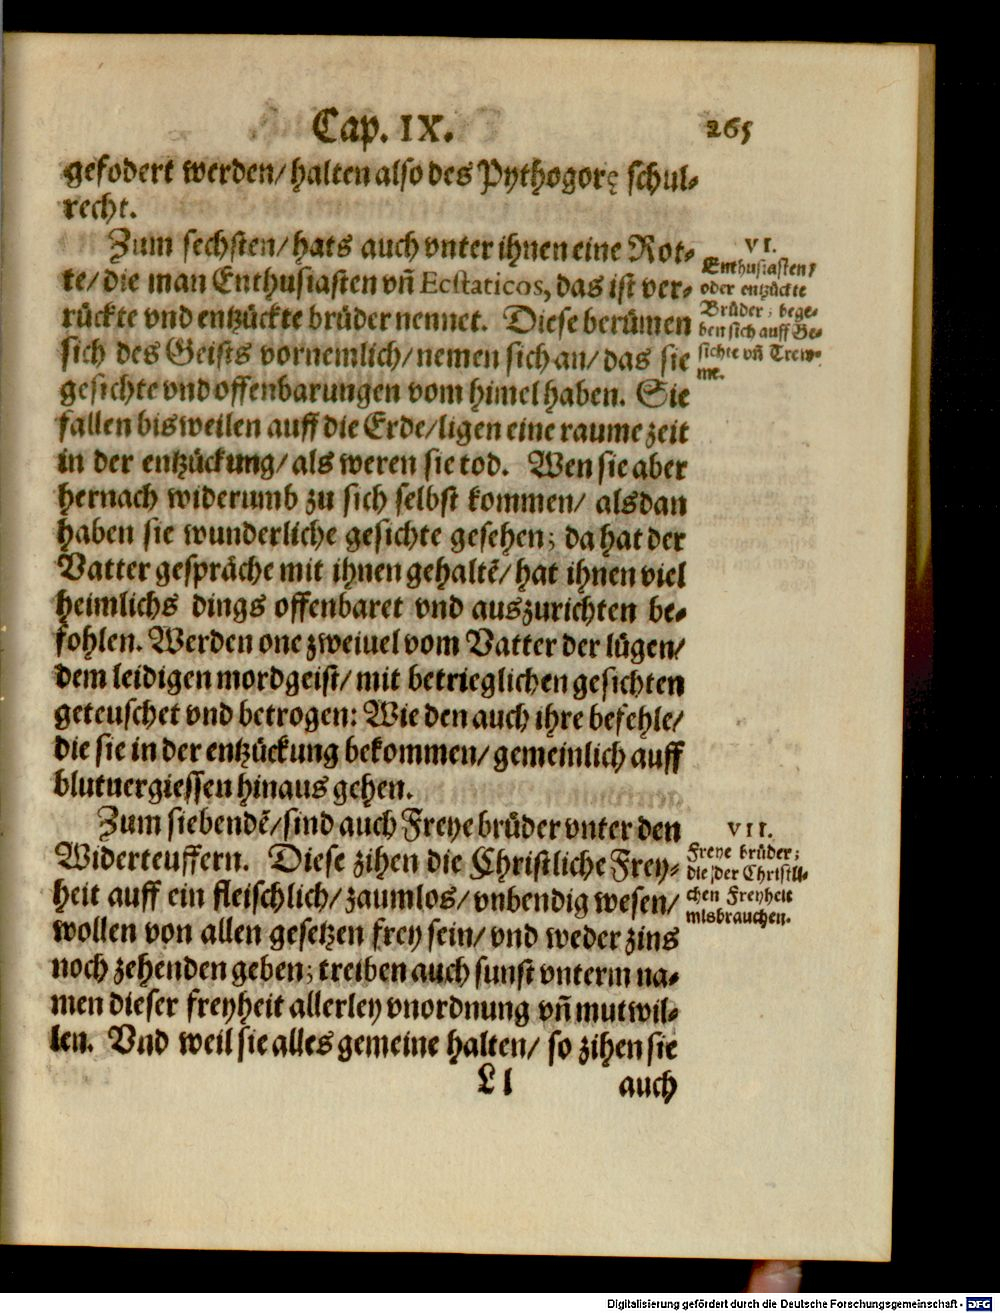 Cap. IX. 265
gefodert werden/ halten also des Pythogorę schul-
recht.
Zum sechsten/ hats auch vnter ihnen eine Rot-
te/ die man Enthusiasten vn̄ Ecstaticos, das ist ver-
rückte vnd entzückte brüder nennet. Diese berümen
sich des Geists vornemlich/ nemen sich an/ das sie
gesichte vnd offenbarungen vom himel haben. Sie
fallen bisweilen auff die Erde/ ligen eine raume zeit
in der entzückung/ als weren sie tod. Wen sie aber
hernach widerumb zu sich selbst kommen/ alsdan
haben sie wunderliche gesichte gesehen; da hat der
Vatter gespräche mit ihnen gehaltē/ hat ihnen viel
heimlichs dings offenbaret vnd auszurichten be-
fohlen. Werden one zweiuel vom Vatter der lügen/
dem leidigen mordgeist/ mit betrieglichen gesichten
geteuschet vnd betrogen: Wie den auch ihre befehle/
die sie in der entzückung bekommen/ gemeinlich auff
blutuergiessen hinaus gehen.
Zum siebendē/ sind auch Freye brüder vnter den
Widerteuffern. Diese zihen die Christliche Frey-
heit auff ein fleischlich/ zaumlos/ vnbendig wesen/
wollen von allen gesetzen frey sein/ vnd weder zins
noch zehenden geben; treiben auch sunst vnterm na-
men dieser freyheit allerley vnordnung vn̄ mutwil-
len. Vnd weil sie alles gemeine halten/ so zihen sie
Ll auch
VI.
Enthusiasten/
oder entzückte
Brüder; bege-
ben sich auff Ge-
sichte vn̄ Trew-
me.
VII.
Freye brüder;
die der Christli-
chen Freyheit
misbrauchen.
Digitalisierung gefördert durch die Deutsche Forschungsgemeinschaft - DFG